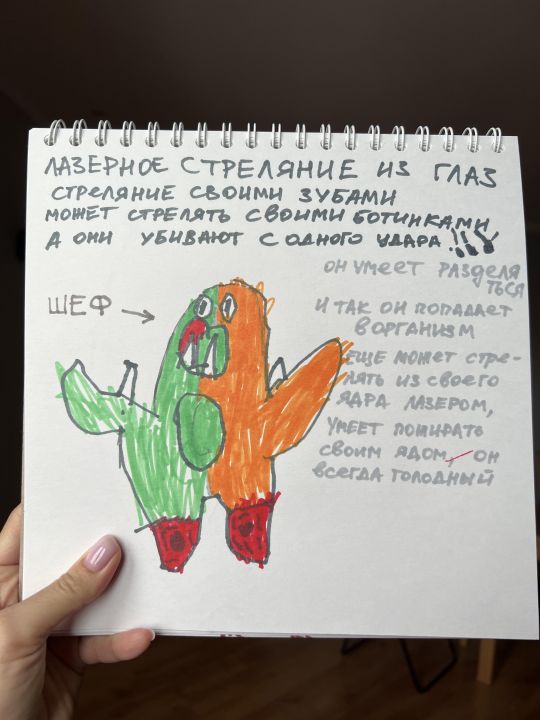 ЛАЗЕРНОЕ СТРЕЛЯНИЕ ИЗ ГЛАЗ
СТРЕЛЯНИЕ СВОИМИ ЗУБАМИ
МОЖЕТ СТРЕЛЯТЬ СВОИМИ БОТИНКАМИ
А ОНИ УБИВАЮТ С ОДНОГО УДАРА!!!
ОН УМЕЕТ РАЗДЕЛЯ
ТЬСЯ
ШЕФ →
И ТАК ОН ПОПАДАЕТ
В ОРГАНИЗМ
ЕЩЕ МОЖЕТ СТРЕ-
ЛЯТЬ ИЗ СВОЕГО
ЯДРА ЛАЗЕРОМ,
УМЕЕТ
СВОИМ ЯДОМ, ОН
ВСЕГДА ГОЛОДНЫЙ